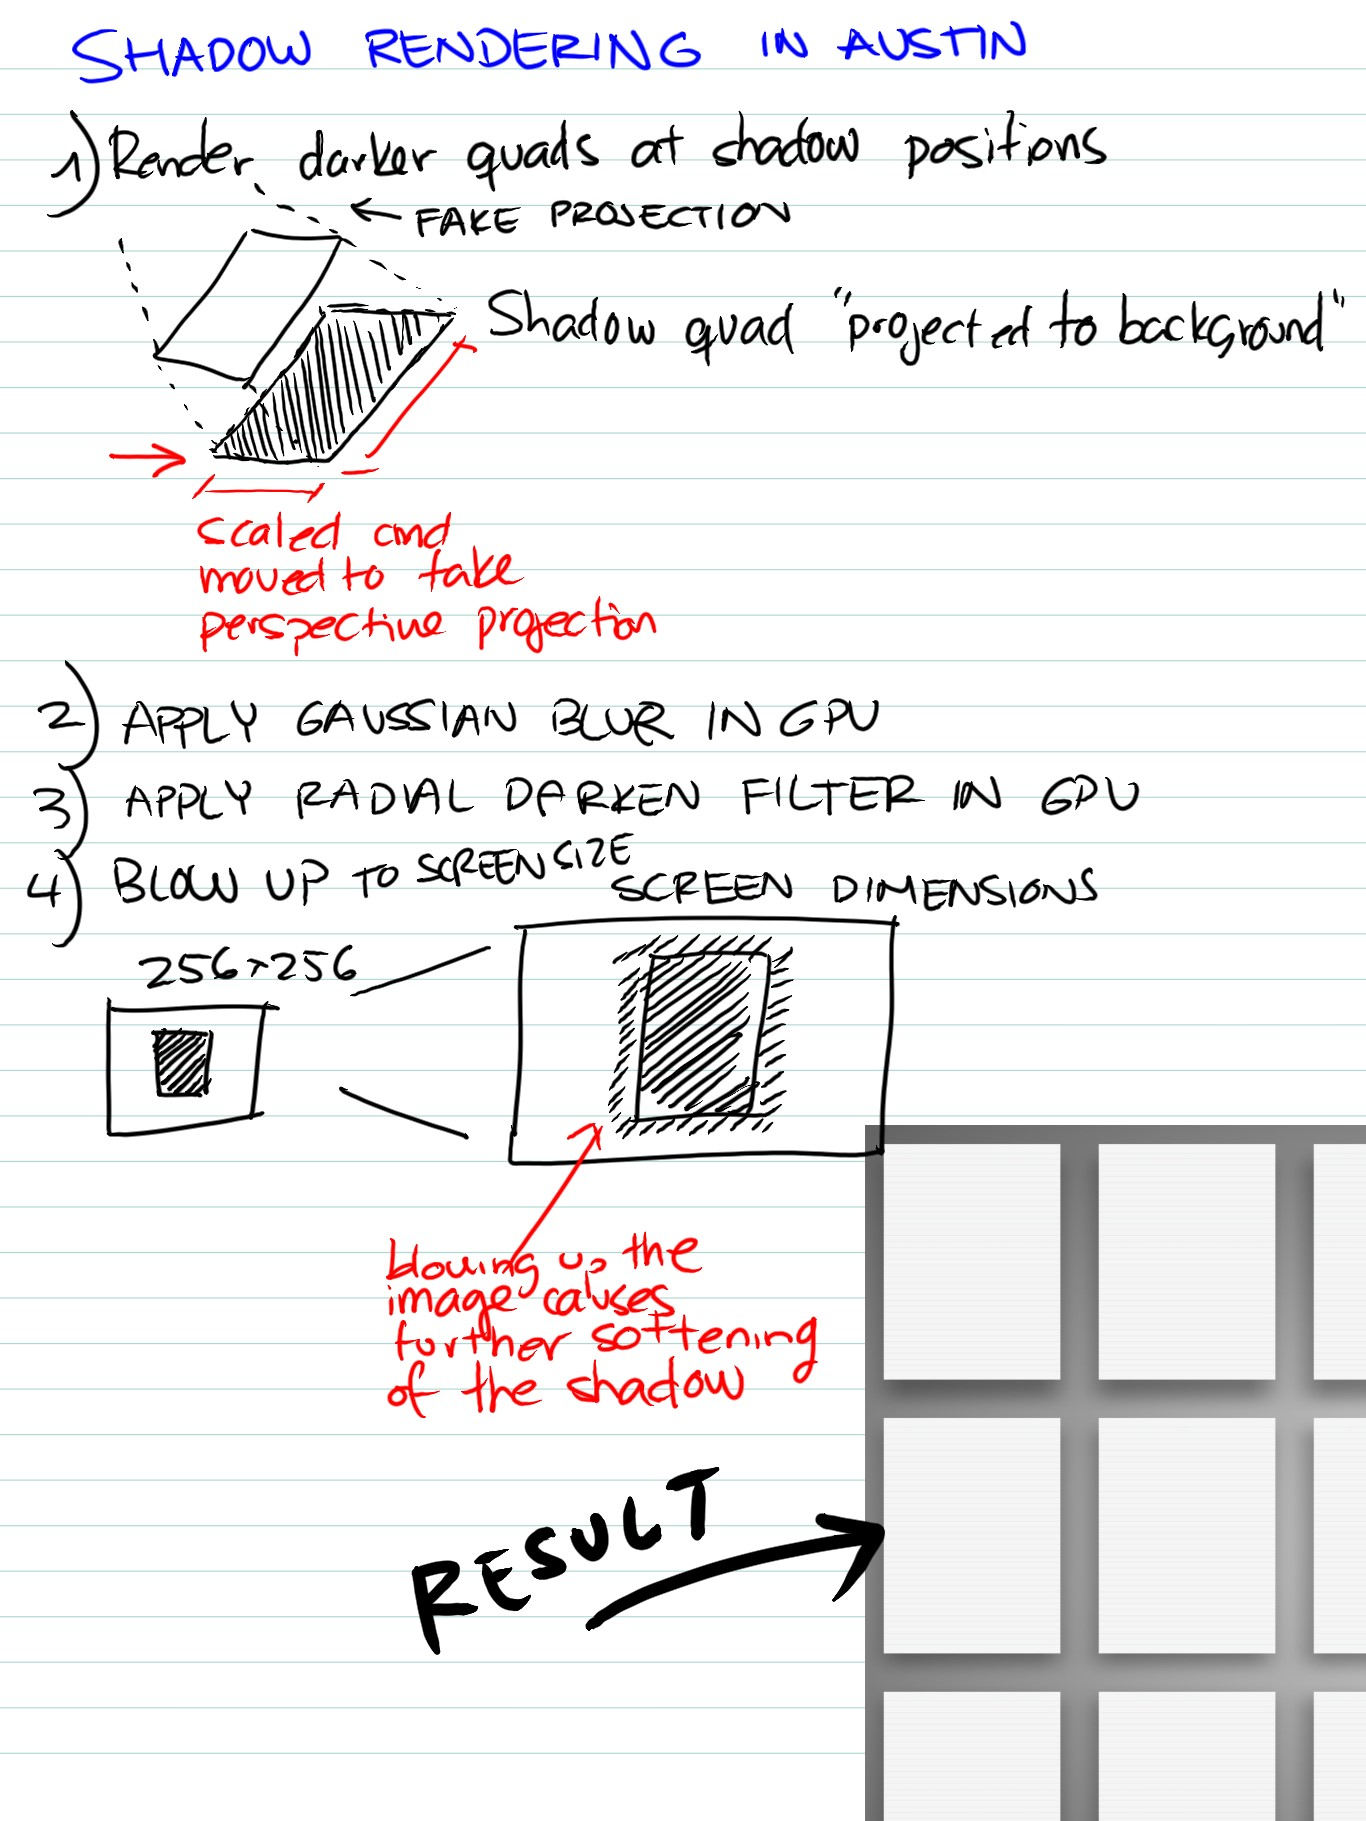 SHADOW RENDERING IN AUSTIN
1) Render darker quads at shadow positions
← FAKE PROJECTION
Shadow quad "projected to background"
scaled and
moved to fake
perspective projection
2) APPLY GAUSSIAN BLUR IN GPU
3) APPLY RADIAL DARKEN FILTER IN GPU
4) BLOW UP TO SCREEN SIZE
SCREEN DIMENSIONS
256×256
blowing up the
image causes
further softening
of the shadow
RESULT